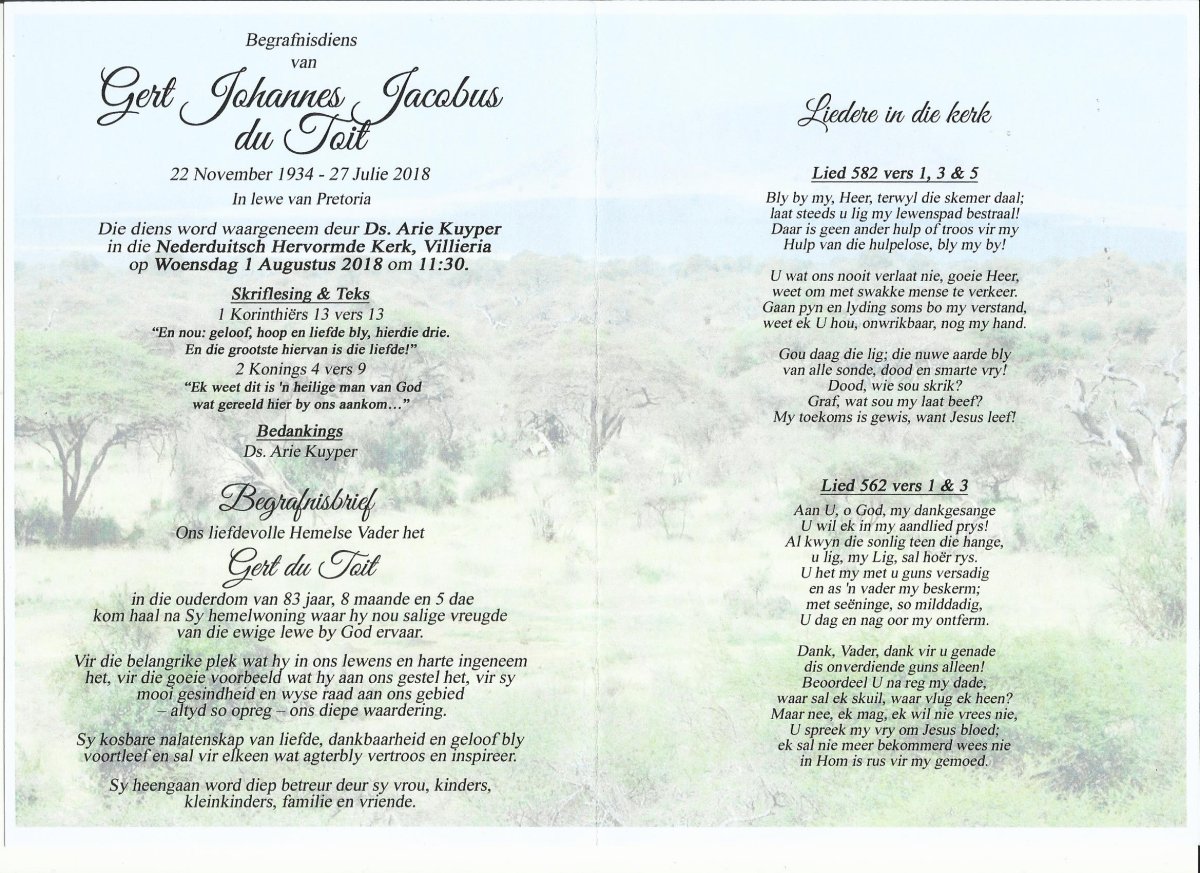 Begrafnisdiens
van
Gert Johannes Jacobus
du Toit
22 November 1934 - 27 Julie 2018
In lewe van Pretoria
Die diens word waargeneem deur Ds. Arie Kuyper
in die Nederduitsch Hervormde Kerk, Villieria
op Woensdag 1 Augustus 2018 om 11:30.
Skriflesing & Teks
1 Korinthiërs 13 vers 13
“En nou: geloof, hoop en liefde bly, hierdie drie.
En die grootste hiervan is die liefde!”
2 Konings 4 vers 9
“Ek weet dit is 'n heilige man van God
wat gereeld hier by ons aankom…”
Bedankings
Ds. Arie Kuyper
Begrafnisbrief
Ons liefdevolle Hemelse Vader het
Gert du Toit
in die ouderdom van 83 jaar, 8 maande en 5 dae
kom haal na Sy hemelwoning waar hy nou salige vreugde
van die ewige lewe by God ervaar.
Vir die belangrike plek wat hy in ons lewens en harte ingeneem
het, vir die goeie voorbeeld wat hy aan ons gestel het, vir sy
mooi gesindheid en wyse raad aan ons gebied
– altyd so opreg – ons diepe waardering.
Sy kosbare nalatenskap van liefde, dankbaarheid en geloof bly
voortleef en sal vir elkeen wat agterbly vertroos en inspireer.
Sy heengaan word diep betreur deur sy vrou, kinders,
kleinkinders, familie en vriende.
Liedere in die kerk
Lied 582 vers 1, 3 & 5
Bly by my, Heer, terwyl die skemer daal;
laat steeds u lig my lewenspad bestraal!
Daar is geen ander hulp of troos vir my
Hulp van die hulpelose, bly my by!
U wat ons nooit verlaat nie, goeie Heer,
weet om met swakke mense te verkeer.
Gaan pyn en lyding soms bo my verstand,
weet ek U hou, onwrikbaar, nog my hand.
Gou daag die lig; die nuwe aarde bly
van alle sonde, dood en smarte vry!
Dood, wie sou skrik?
Graf, wat sou my laat beef?
My toekoms is gewis, want Jesus leef!
Lied 562 vers 1 & 3
Aan U, o God, my dankgesange
U wil ek in my aandlied prys!
Al kwyn die sonlig teen die hange,
u lig, my Lig, sal hoër rys.
U het my met u guns versadig
en as 'n vader my beskerm;
met seëninge, so milddadig,
U dag en nag oor my ontferm.
Dank, Vader, dank vir u genade
dis onverdiende guns alleen!
Beoordeel U na reg my dade,
waar sal ek skuil, waar vlug ek heen?
Maar nee, ek mag, ek wil nie vrees nie,
U spreek my vry om Jesus bloed;
ek sal nie meer bekommerd wees nie
in Hom is rus vir my gemoed.